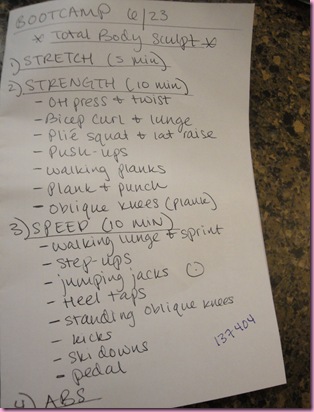 BOOTCAMP 6/23
* Total Body Sculpt *
1) STRETCH (5 min)
2) STRENGTH (10 min)
- OH press & twist
- Bicep curl & lunge
- Plié squat & lat raise
- Push-ups
- walking planks
- Plank & punch
- oblique knees (plank)
3) SPEED (10 MIN)
- walking lunge & sprint
- step-ups
- jumping jacks
- Heel taps
- standing oblique knees
- kicks
- ski downs
- pedal
137404
4) ABS